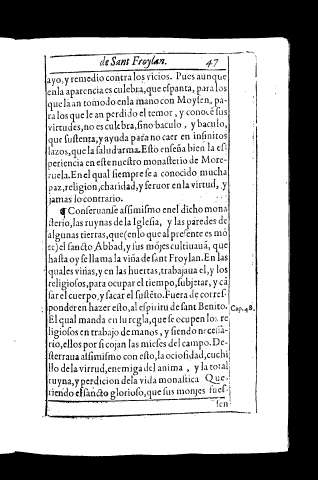 de Sant Froylan. 47
ayo, y remedio contra los vicios. Pues aunque
enla aparencia es culebra, que espanta, para los
que la an tomodo enla mano con Moysen, pa-
ra los que le an perdido el temor, y conocē sus
virtudes, no es culebra, sino baculo, y baculo,
que sustenta, y ayuda para no caer en infinitos
lazos, que la salud arma. Esto enseña bien la es
periencia en este nuestro monasterio de More-
ruela. En el qual siempre se a conocido mucha
paz, religion, charidad, y feruor en la virtud, y
jamas lo contrario.
¶ Conseruanse assimismo enel dicho mona
sterio, las ruynas de la Iglesia, y las paredes de
algunas tierras, que (enlo que al presente es mō
te) el sancto Abbad, y sus mōjes cultiuauā, que
hasta oy se llama la viña de sant Froylan. En las
quales viñas, y en las huertas, trabajaua el, y los
religiosos, para ocupar el tiempo, subjetar, y cā
sar el cuerpo, y sacar el sustēto. Fuera de corres-
ponder en hazer esto, al espiritu de sant Benito.
Cap. 48.
El qual manda en su regla, que se ocupen los re
ligiosos en trabajo de manos, y siendo necessa-
rio, ellos por si cojan las mieses del campo. De-
sterraua assimismo con esto, la ociosidad, cuchi
llo de la virtud, enemiga del anima, y la total
ruyna, y perdicion dela vida monastica Que-
riendo el sancto glorioso, que sus monjes fues-
sen